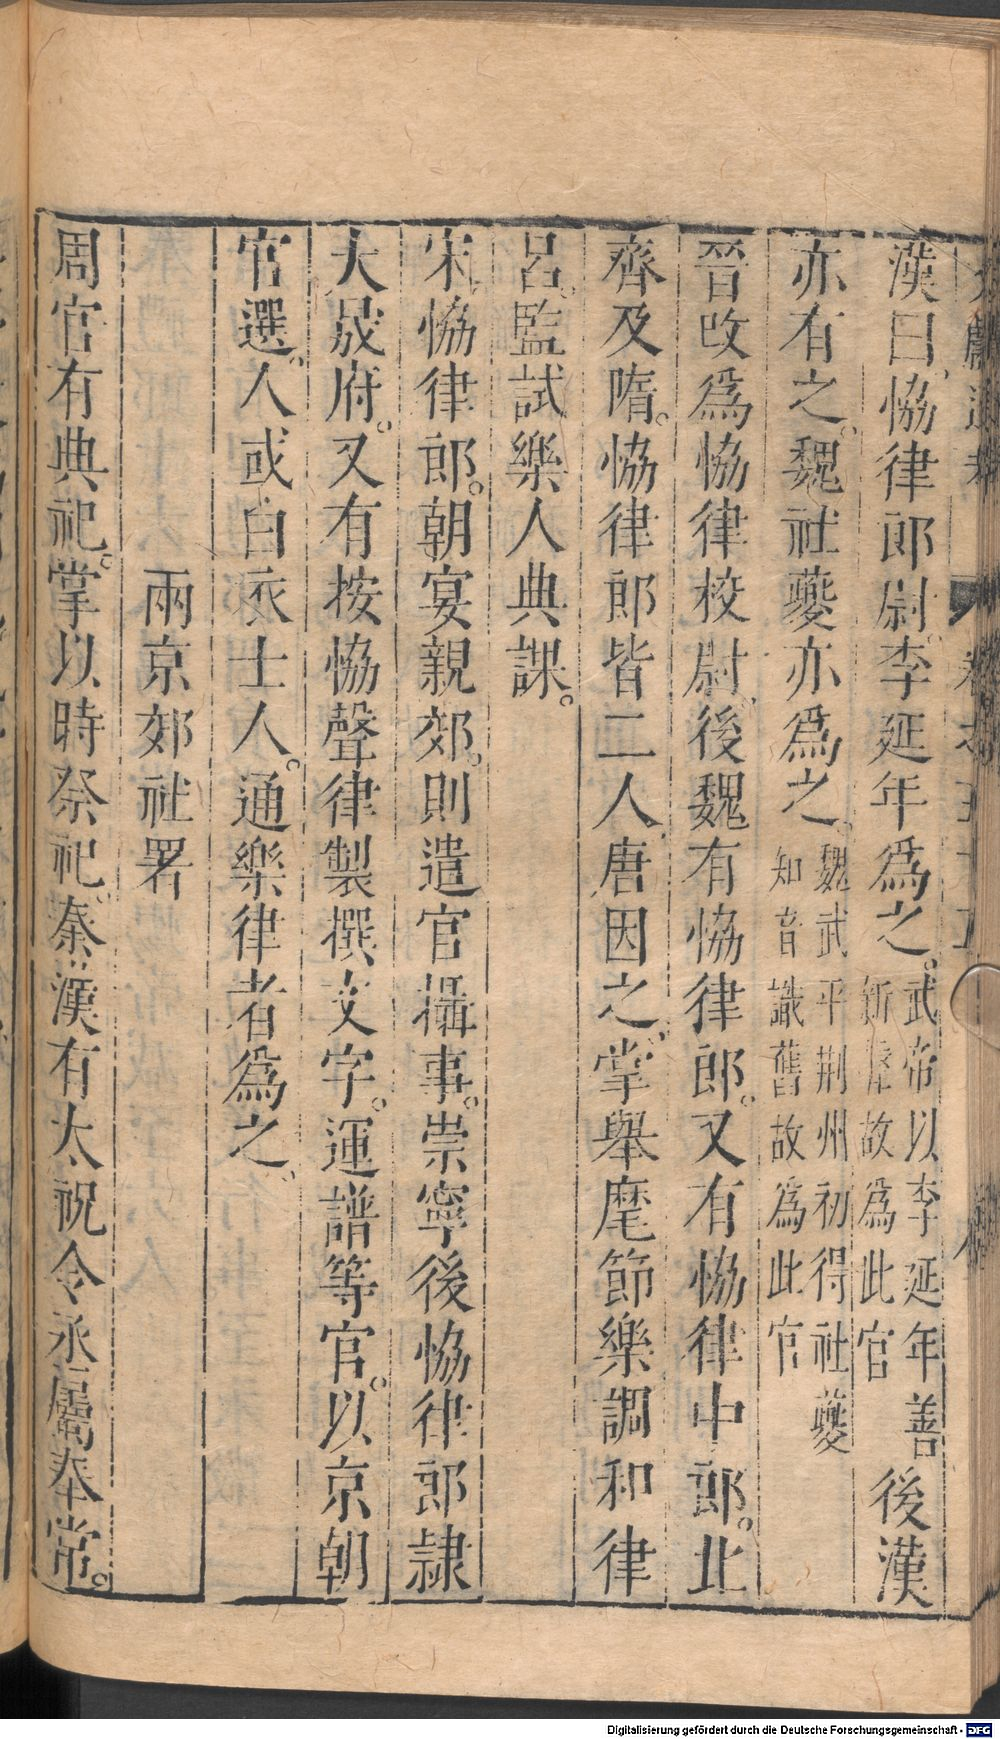 漢曰協律都尉李延年爲之。武帝以李延年善新聲故爲此官後漢
亦有之。魏杜夔亦爲之。魏武平荆州初得杜夔知音識舊故爲此官
晉改爲協律校尉。後魏有協律郎。又有協律中郎。北
齊及隋。協律郎皆二人。唐因之。掌舉麾節樂調和律
呂。監試樂人典課。
宋。協律郎。朝宴親郊。則遣官攝事。崇寧後協律郎隷
大晟府。又有按協聲律製撰文字。運譜等官。以京朝
官選。人或白衣士人。通樂律者爲之。
兩京郊社署
周官有典祀。掌以時祭祀。秦漢有太祝令丞屬奉常。
Digitalisierung gefördert durch die Deutsche Forschungsgemeinschaft - DFG